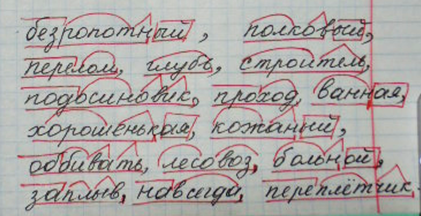 безропотный, полковый,
перелом, глубь, строитель,
подосиновик, проход, ванная,
хорошенькая, кожаный,
оббивать, лесовоз, больной,
заплыв, навсегда, переплётчик.